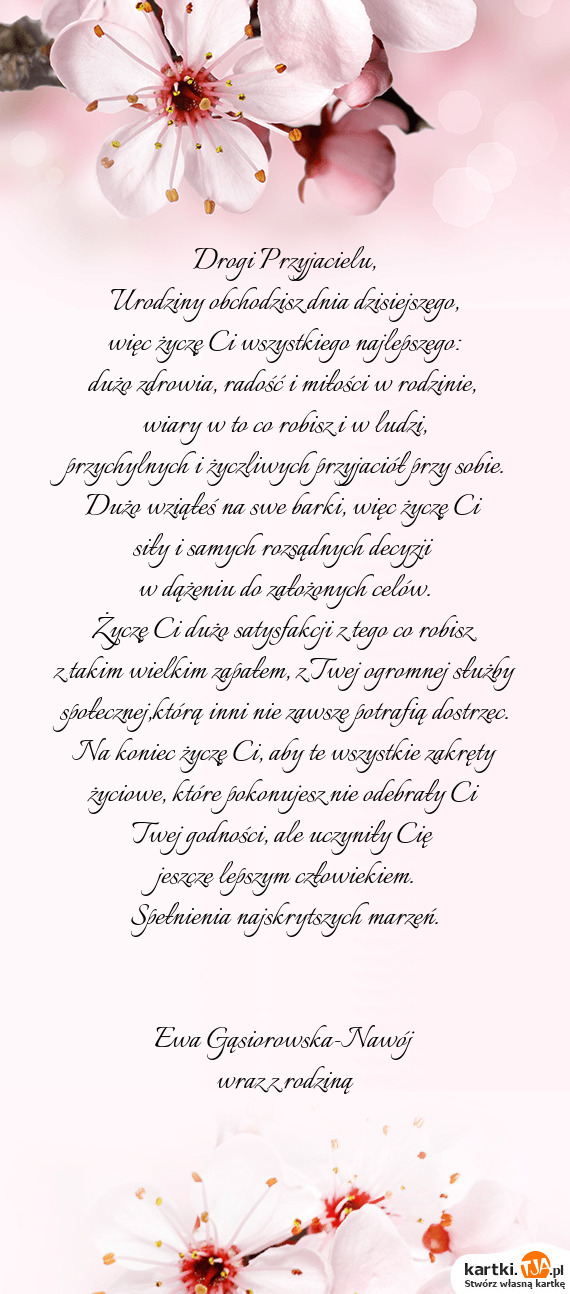 Drogi Przyjacielu,
Urodziny obchodzisz dnia dzisiejszego,
więc życzę Ci wszystkiego najlepszego:
dużo zdrowia, radość i miłości w rodzinie,
wiary w to co robisz i w ludzi,
przychylnych i życzliwych przyjaciół przy sobie.
Dużo wziąłeś na swe barki, więc życzę Ci
siły i samych rozsądnych decyzji
w dążeniu do założonych celów.
Życzę Ci dużo satysfakcji z tego co robisz
z takim wielkim zapałem, z Twej ogromnej służby
społecznej,którą inni nie zawsze potrafią dostrzec.
Na koniec życzę Ci, aby te wszystkie zakręty
życiowe, które pokonujesz nie odebrały Ci
Twej godności, ale uczyniły Cię
jeszcze lepszym człowiekiem.
Spełnienia najskrytszych marzeń.
Ewa Gąsiorowska-Nawój
wraz z rodziną
kartki.TJA.pl
Stwórz własną kartkę